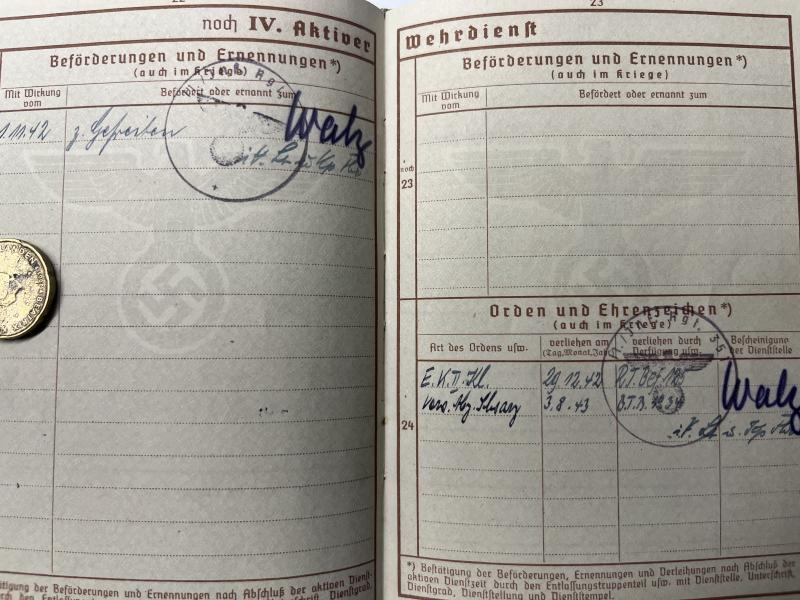 22
noch IV. Aktiver
Beförderungen und Ernennungen*)
(auch im Kriege)
Mit Wirkung vom
Befördert oder ernannt zum
1.11.42 z. Gefreiten
Walz
23
Wehrdienst
Beförderungen und Ernennungen*)
(auch im Kriege)
Mit Wirkung vom
Befördert oder ernannt zum
noch
23
Orden und Ehrenzeichen*)
(auch im Kriege)
Art des Ordens usw.
verliehen am
(Tag, Monat, Jahr)
verliehen durch
Verfügung usw.
Bescheinigung
der Dienststelle
Rgt. 35
E.K. II. Kl. 29.12.42
Verw. Abz. Schwarz 3.8.43
Walz
24
*) Bestätigung der Beförderungen, Ernennungen und Verleihungen nach Abschluß der
aktiven Dienstzeit durch den Entlassungstruppenteil usw. mit Dienststelle, Unterschrift,
Dienstgrad, Dienststellung und Dienststempel.
tätigung der Beförderungen und Ernennungen nach Abschluß der aktiven Dienst-